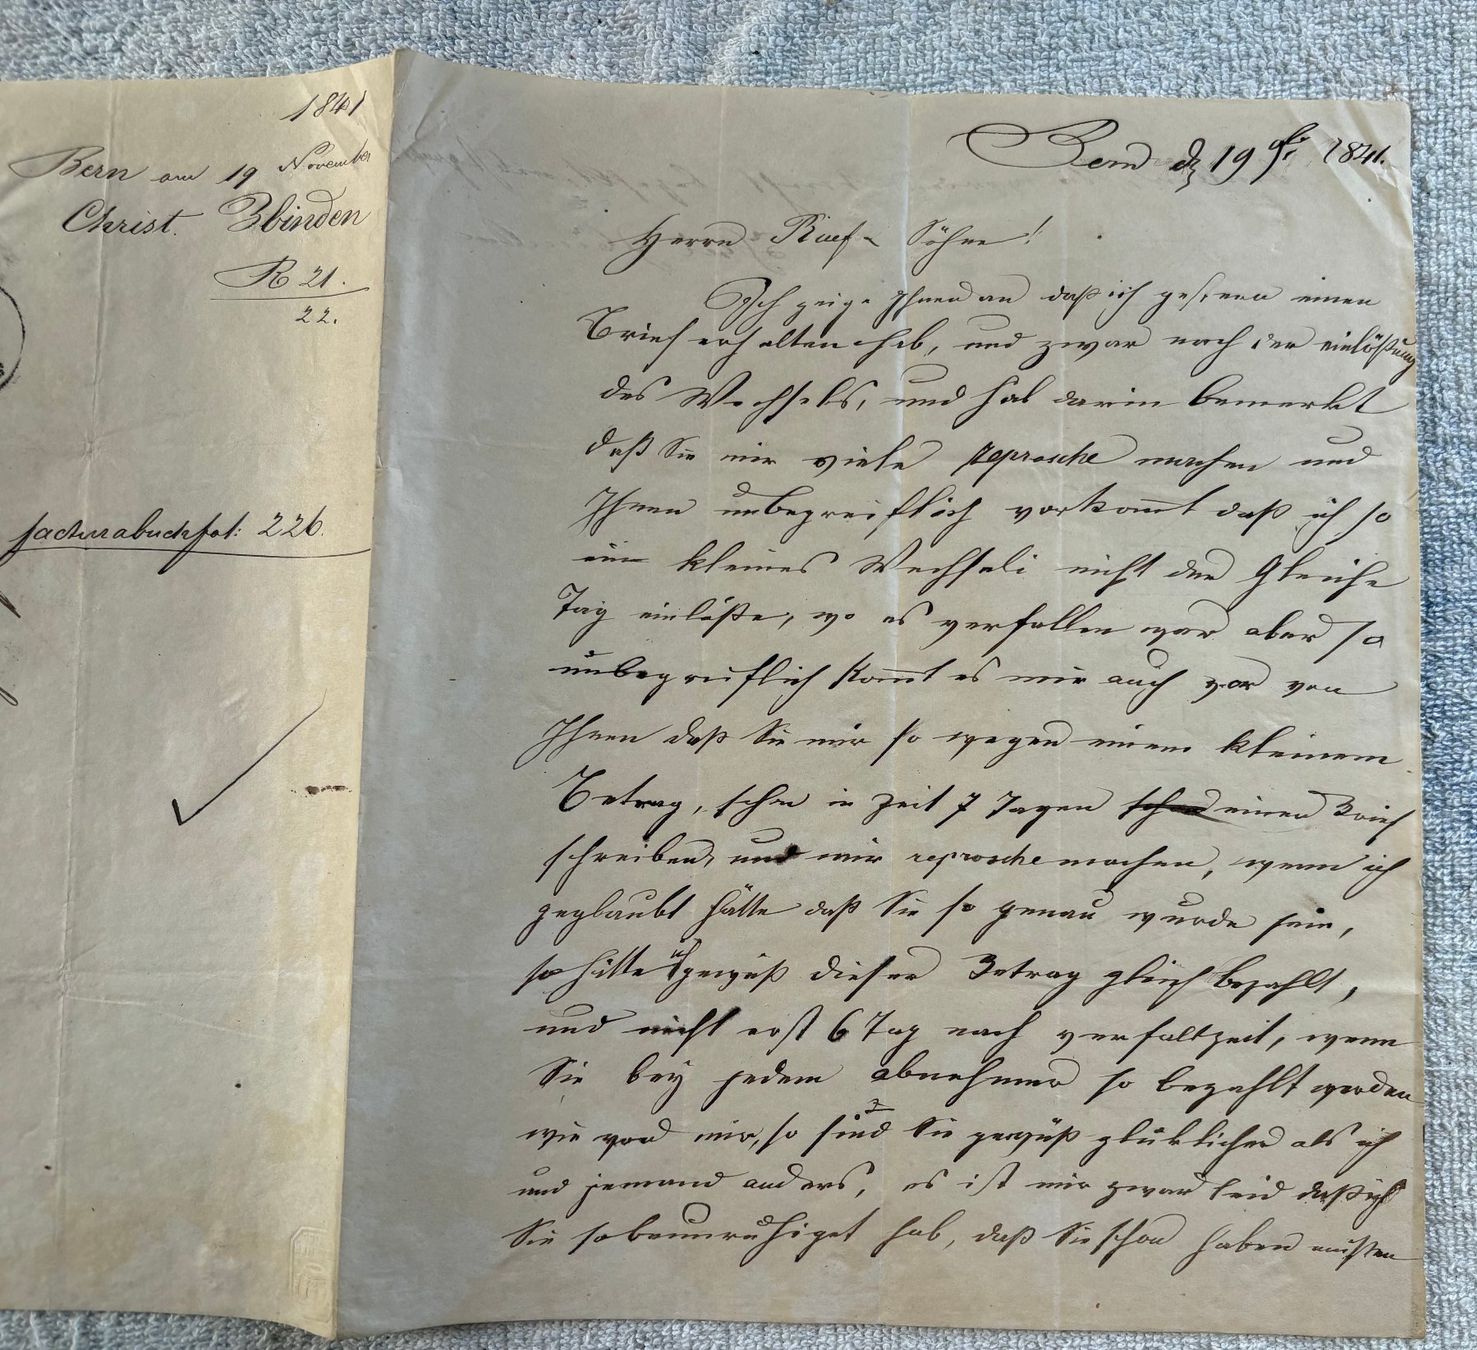 1841
Bern am 19 November
Christ. Zbinden
R 21.
22.
facturabuch fol: 226.
Bern d 19 1841.
Herrn Ruef Söhne!
Ich zeige Ihnen an daß ich gestern einen
Brief erhalten hab, und zwar nach der einlößung
des Wechsels, und hab darin bemerkt
daß Sie mir viele reprosche machen und
Ihnen unbegreiflich vorkomt daß ich so
ein kleines Wechseli nicht den Gleiche
Tag einlößte, wo es verfallen war aber so
unbegreiflich komt es mir auch vor von
Ihnen daß Sie mir so wegen einem kleinem
Betrag, schon in Zeit 7 Tagen schon einen Brief
schreiben, und mir reprosche machen, wenn ich
geglaubt hätte daß Sie so genau wurde sein,
so hätte ich gewüß dieser Betrag gleich bezahlt,
und nicht erst 6 Tag nach verfaltzeit, wenn
Sie bey jedem abnehmer so bezahlt werden
wie von mir, so sind Sie gewüß glüklicher als ich
und jemand anders, es ist mir zwar leid daß ich
Sie so beunruhiget hab, daß Sie schon haben müssen